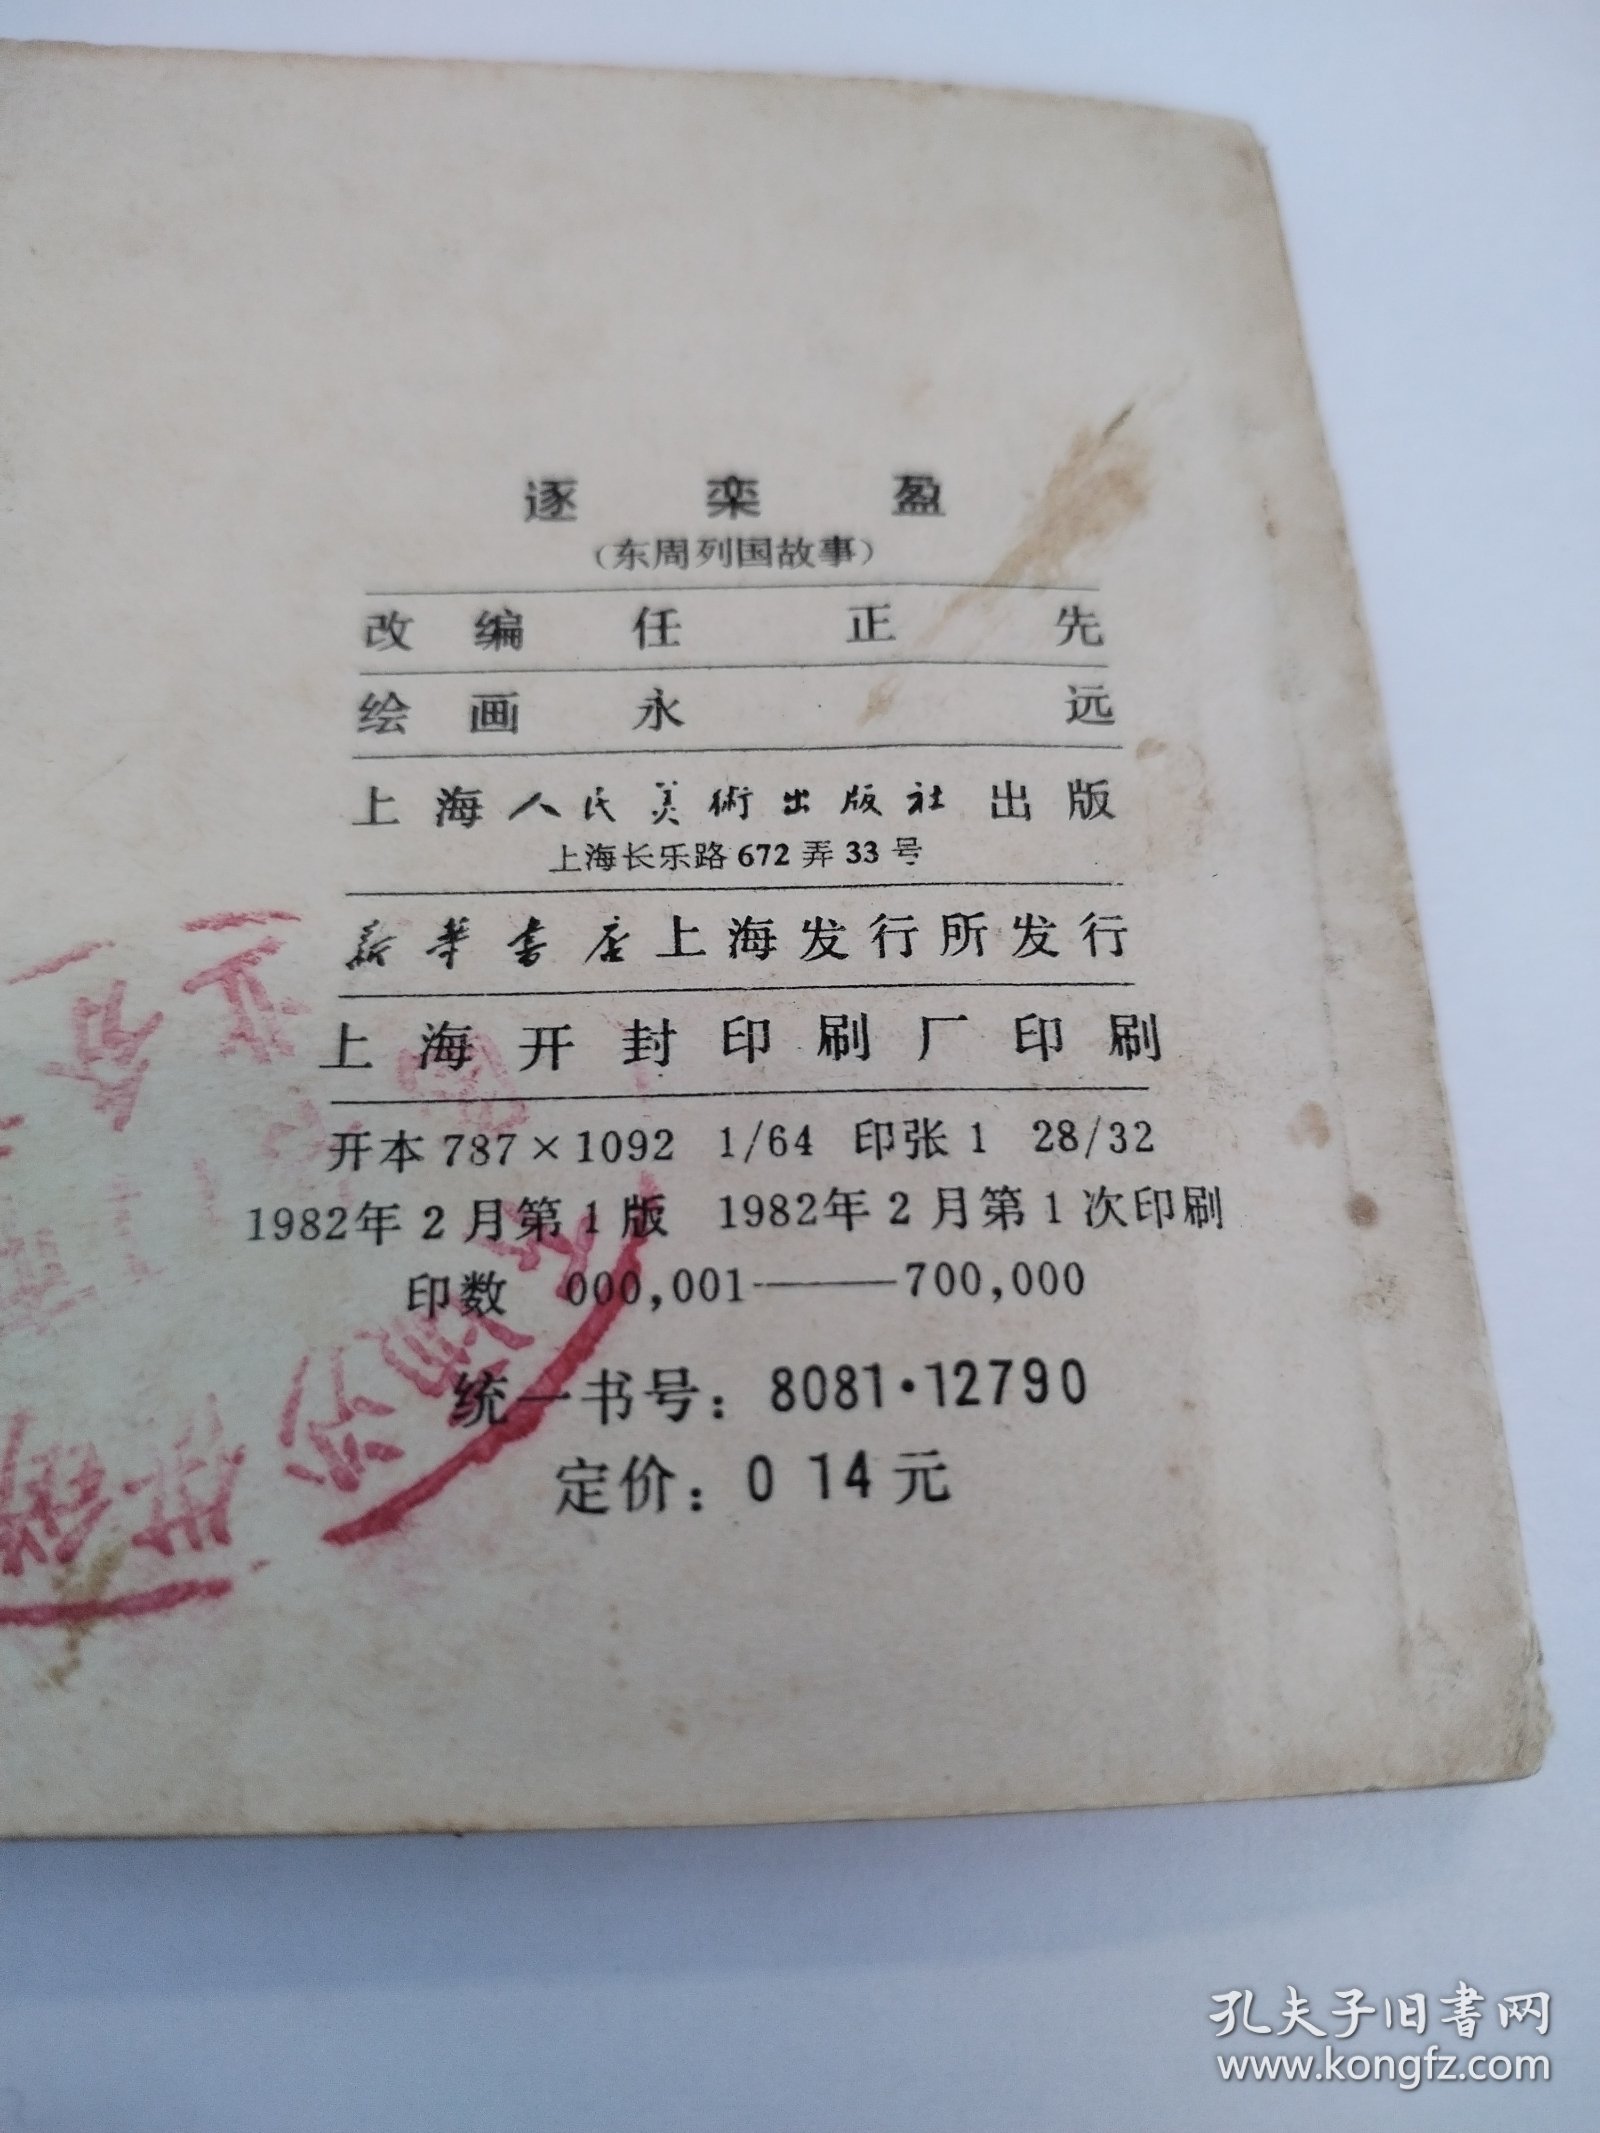 逐栾盈
（东周列国故事）
改编 任正先
绘画 永远
上海人民美術出版社出版
上海长乐路672弄33号
新华书店上海发行所发行
上海开封印刷厂印刷
开本 787×1092 1/64 印张 1 28/32
1982年2月第1版 1982年2月第1次印刷
印数 000,001——700,000
统一书号：8081·12790
定价：0 14元
孔夫子旧书网
www.kongfz.com